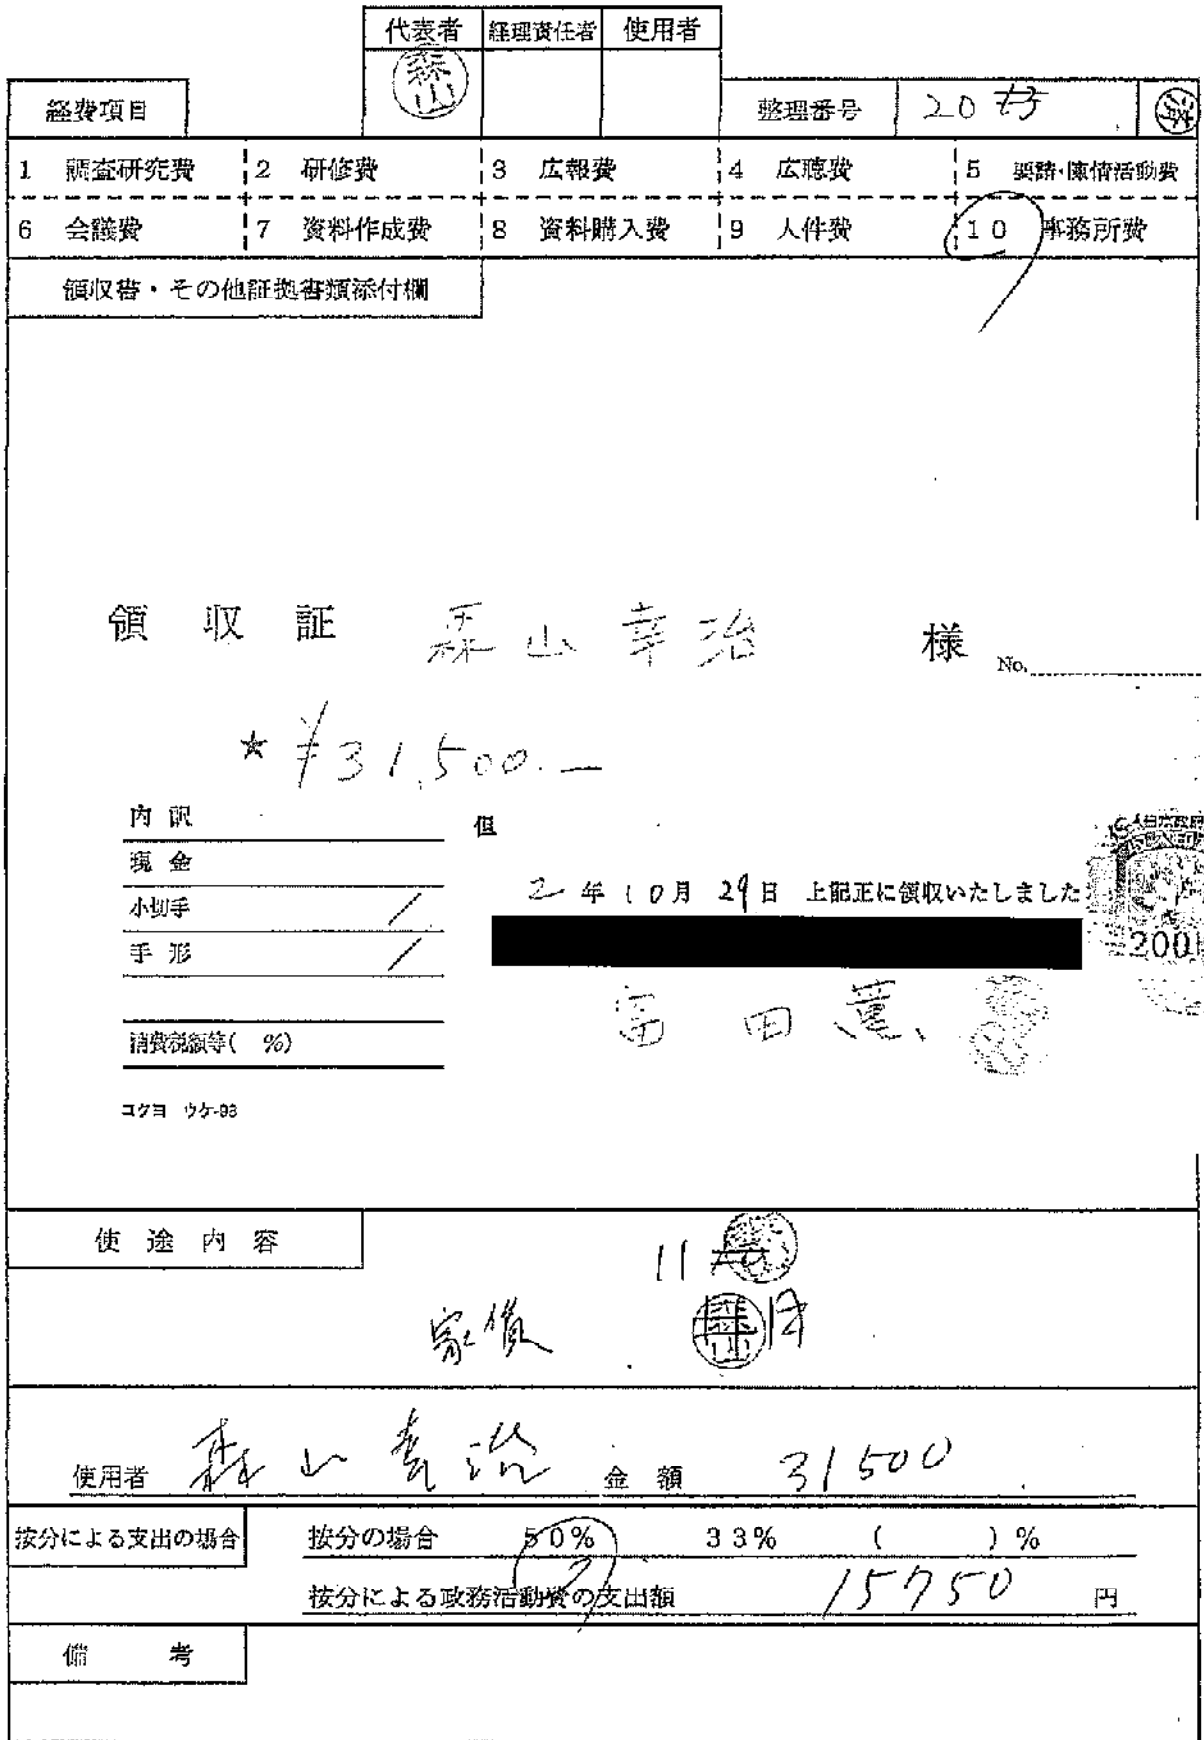 代表者 経理責任者 使用者
森山
経費項目 整理番号 20 済
1 調査研究費 2 研修費 3 広報費 4 広聴費 5 要請・陳情活動費
6 会議費 7 資料作成費 8 資料購入費 9 人件費 10 事務所費
領収書・その他証拠書類添付欄
領収証 森山幸治 様 No.
★ ¥31,500.—
内訳 但
現金
2年10月29日 上記正に領収いたしました
小切手 /
手形 /
200
富田薫
消費税額等( %)
コクヨ ウケ-93
使途内容
11
家賃 月
使用者 森山幸治 金額 31500
按分による支出の場合 按分の場合 50% 33% ( )%
按分による政務活動費の支出額 15750 円
備考